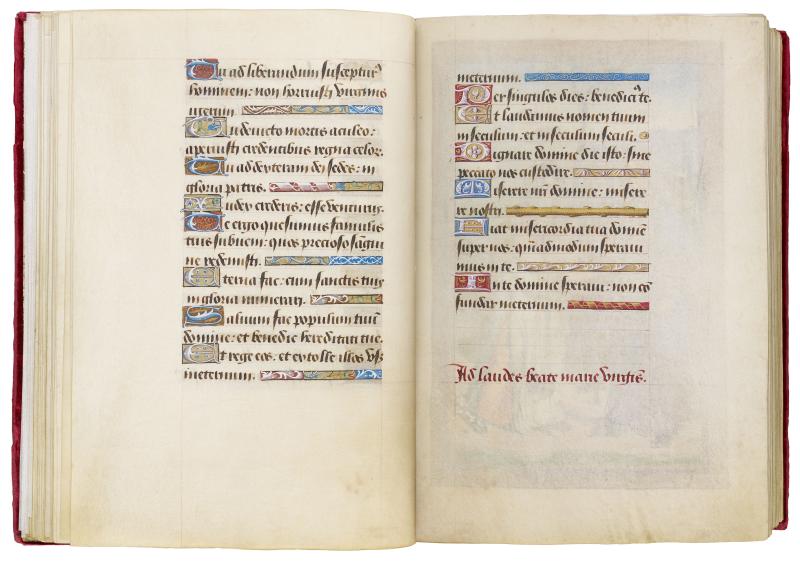 Tu ad liberandum suscepturus
hominem: non horruisti virginis
uterum.
Tu devicto mortis aculeo:
aperuisti credentibus regna celorum.
Tu ad dexteram dei sedes: in
gloria patris.
Iudex crederis: esse venturus.
Te ergo quesumus famulis
tuis subveni: quos precioso sangui
ne redemisti.
Eterna fac: cum sanctis tuis
in gloria numerari.
Saluum fac populum tuum
domine: et benedic hereditati tue.
Et rege eos: et extolle illos vsque
ineternum.
ineternum.
Per singulos dies: benedicimus te.
Et laudamus nomen tuum
in seculum: et in seculum seculi.
Dignare domine die isto: sine
peccato nos custodire.
Miserere nri domine: misere
re nostri.
Fiat misericordia tua domine
super nos: quemadmodum speraui
mus in te.
In te domine speraui: non con
fundar ineternum.
Ad laudes beate marie virginis.